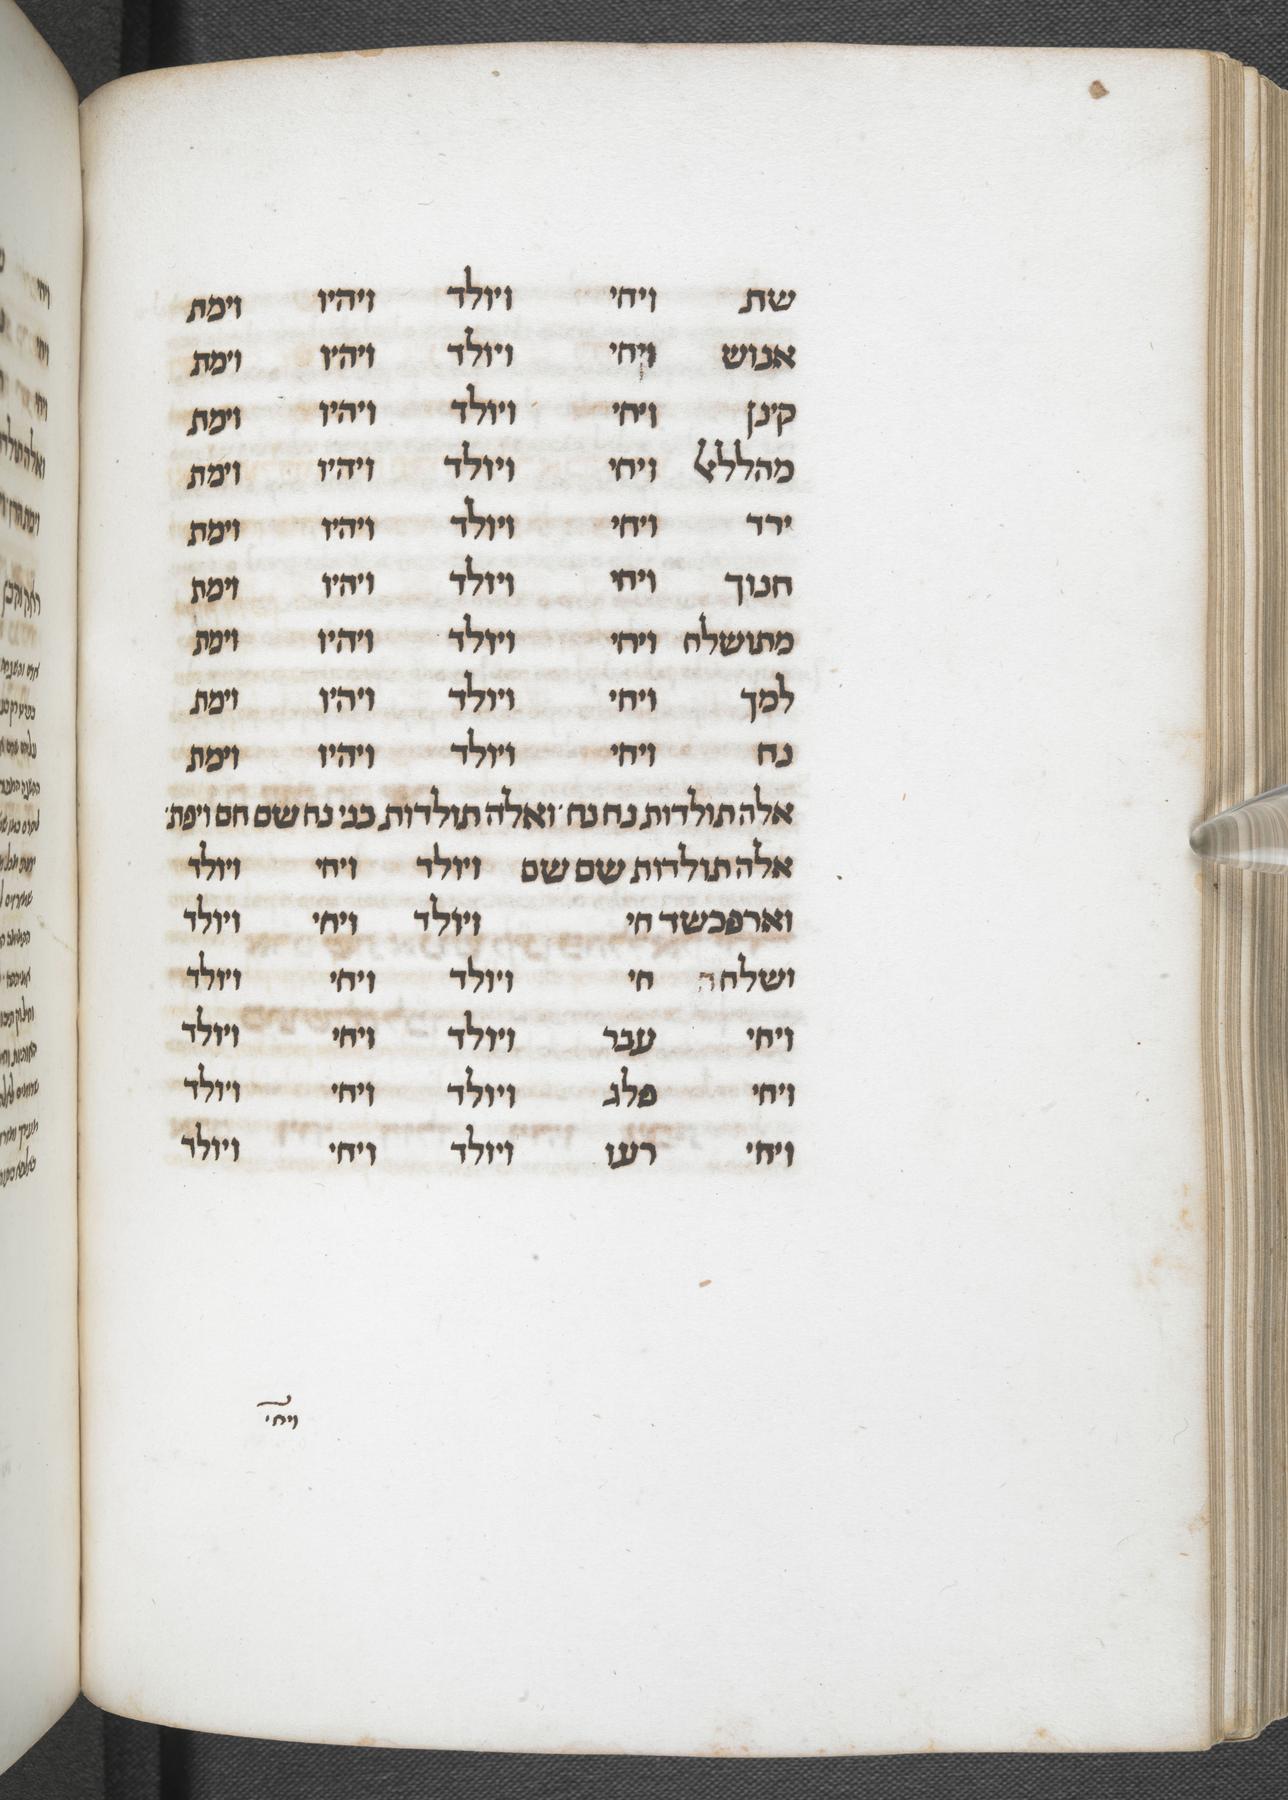 שת ויחי ויולד ויהיו וימת
אנוש ויחי ויולד ויהיו וימת
קינן ויחי ויולד ויהיו וימת
מהללאל ויחי ויולד ויהיו וימת
ירד ויחי ויולד ויהיו וימת
חנוך ויחי ויולד ויהיו וימת
מתושלח ויחי ויולד ויהיו וימת
למך ויחי ויולד ויהיו וימת
נח ויחי ויולד ויהיו וימת
אלה תולדות נח נח׳ ואלה תולדות בני נח שם חם ויפת׳
אלה תולדות שם שם ויולד ויחי ויולד
וארפכשד חי ויולד ויחי ויולד
ושלח חי ויולד ויחי ויולד
ויחי עבר ויולד ויחי ויולד
ויחי פלג ויולד ויחי ויולד
ויחי רעו ויולד ויחי ויולד
ויחי